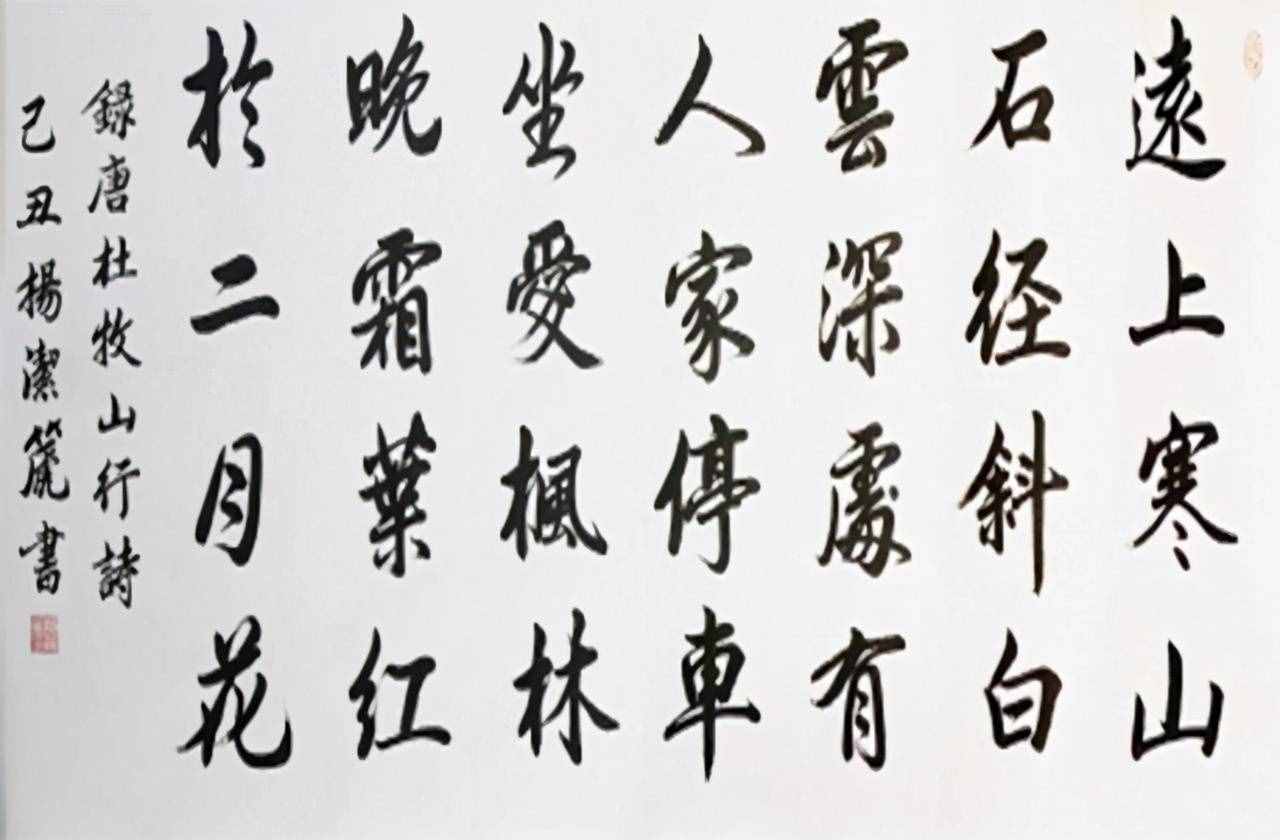 遠上寒山
石径斜白
雲深處有
人家停車
坐愛楓林
晚霜葉红
於二月花
録唐杜牧山行詩
己丑揚潔篪書